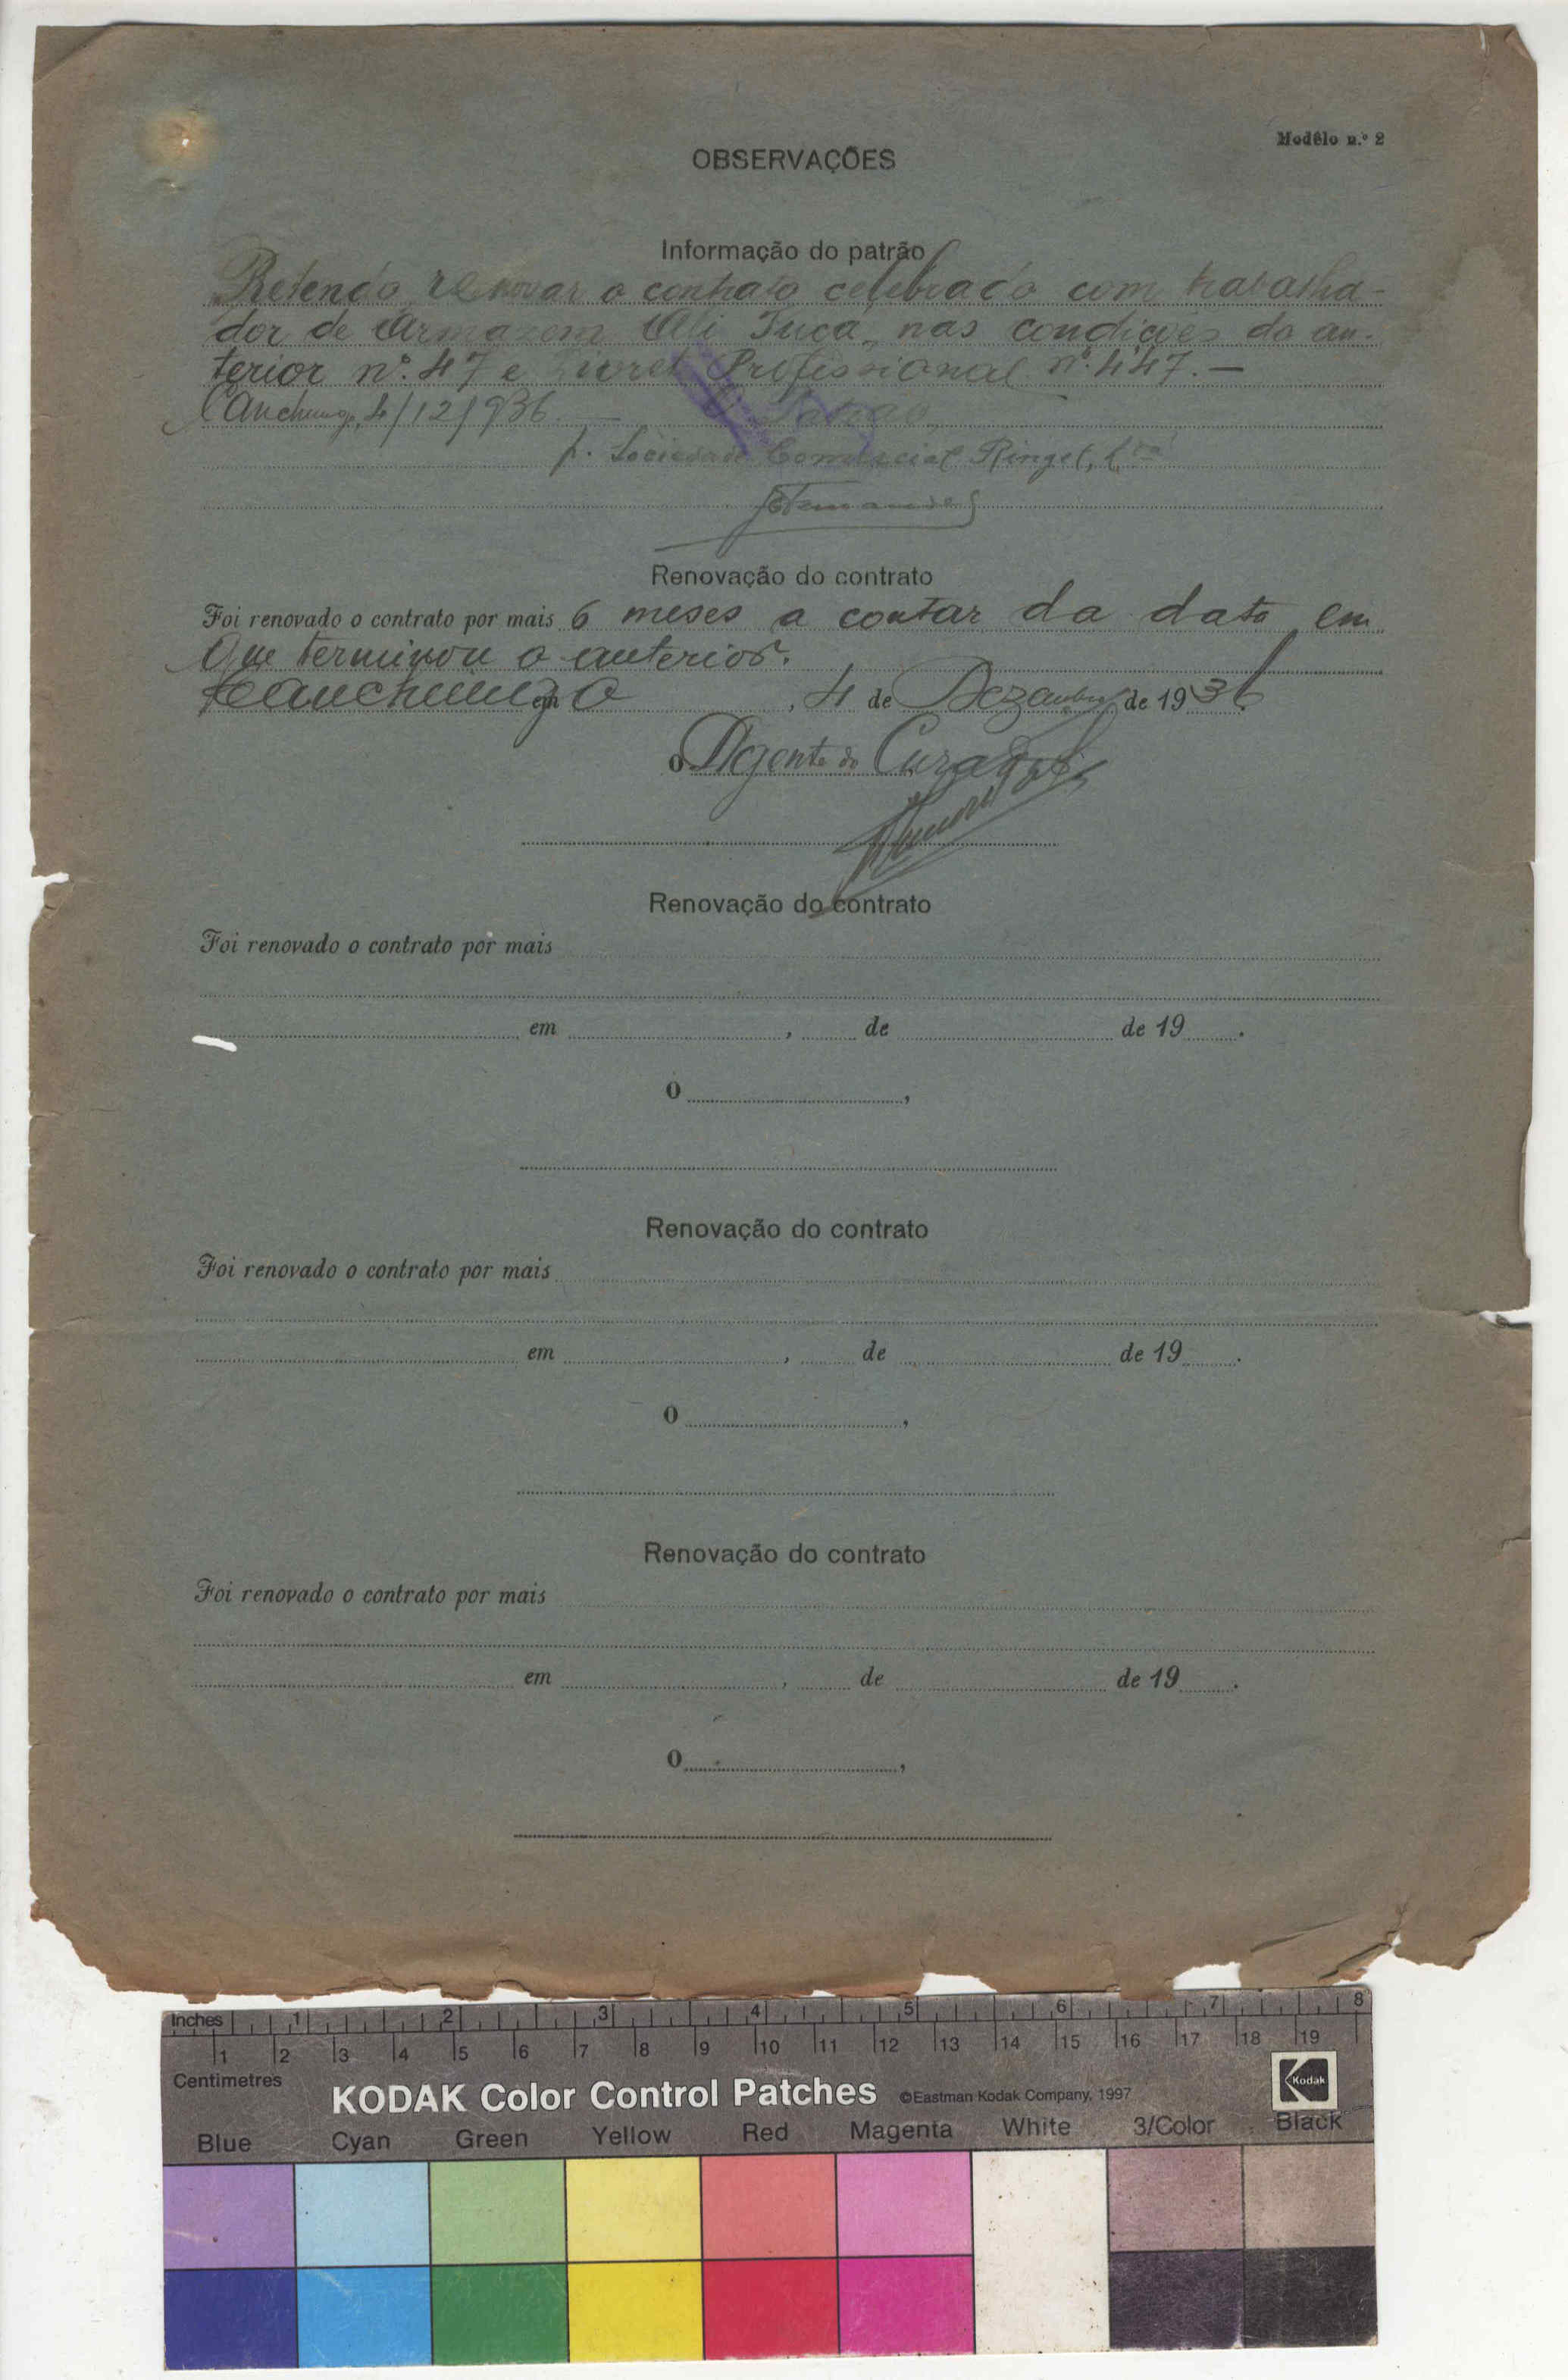 Modêlo n.º 2
OBSERVAÇÕES
Informação do patrão
Pretendo renovar o contrato celebrado com trabalha-
dor de Armazem Ali Jucá, nas condições do an-
terior nº. 47 e Livret Profissional nº. 447. —
Canchungo, 4/12/936
O Patrão,
p. Sociedade Comercial Ringel, L.da
Renovação do contrato
Foi renovado o contrato por mais 6 meses a contar da data em
que terminou o anterior.
Canchungo em , 4 de Dezembro de 1936.
O Agente do Curador
Renovação do contrato
Foi renovado o contrato por mais
em , de de 19 .
O ,
Renovação do contrato
Foi renovado o contrato por mais
em , de de 19 .
O ,
Renovação do contrato
Foi renovado o contrato por mais
em , de de 19 .
O ,
Inches 1 2 3 4 5 6 7 8
1 2 3 4 5 6 7 8 9 10 11 12 13 14 15 16 17 18 19
Centimetres
KODAK Color Control Patches ©Eastman Kodak Company, 1997 Kodak
Blue Cyan Green Yellow Red Magenta White 3/Color Black